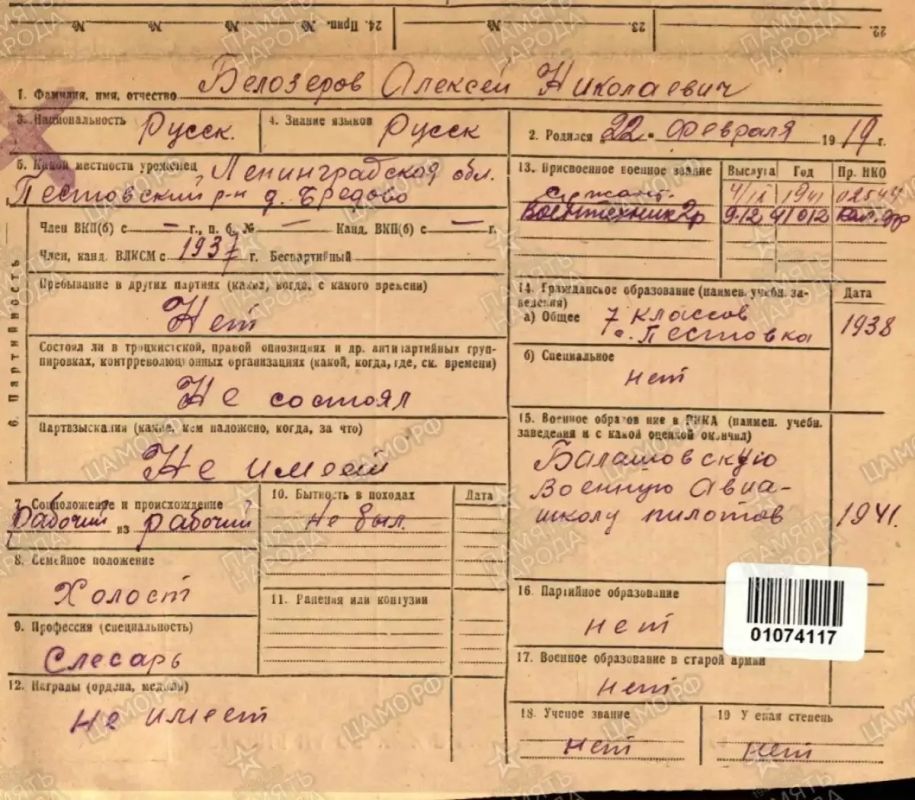 24. Прип. № № № №
23.
22.
1. Фамилия, имя, отчество Белозеров Алексей Николаевич
3. Национальность Русск. 4. Знание языков Русск
2. Родился 22 " февраля 1919 г.
5. Какой местности уроженец Ленинградская обл.
Пестовский р-н д. Бредово
6. Партийность
Член ВКП(б) с — г., п. б. № — Канд. ВКП(б) с — г.
Член, канд. ВЛКСМ с 1937 г. Беспартийный
Пребывание в других партиях (каких, когда, с какого времени)
Нет
Состоял ли в троцкистской, правой оппозициях и др. антипартийных груп-
пировках, контрреволюционных организациях (какой, когда, где, с к. времени)
Не состоял
Партвзыскания (какие, кем наложено, когда, за что)
Не имеет
7. Соцположение и происхождение
Рабочий из рабочий
8. Семейное положение
Холост
9. Профессия (специальность)
Слесарь
10. Бытность в походах Дата
Не был.
11. Ранения или контузии
12. Награды (ордена, медали)
не имеет
13. Присвоенное военное звание Выслуга Год Пр. НКО
сержант 1941
Воентехник 2р
14. Гражданское образование (наимен. учебн. за-
ведения) Дата
а) Общее 7 классов
с. Пестовка 1938
б) Специальное
нет
15. Военное образование в РККА (наимен. учебн.
заведения и с какой оценкой окончил)
Балашовскую
Военную Авиа-
школу пилотов 1941.
16. Партийное образование
нет
01074117
17. Военное образование в старой армии
нет
18. Ученое звание 19 Ученая степень
нет нет
ПАМЯТЬ НАРОДА
ЦАМО.РФ